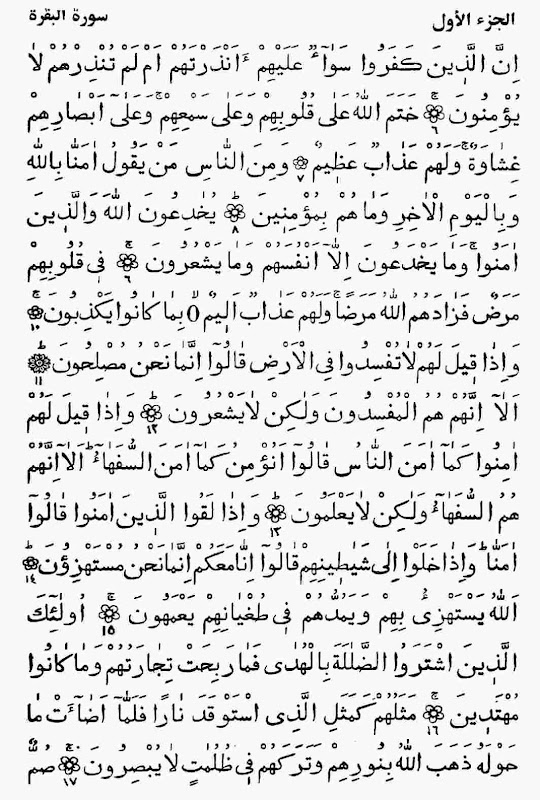 الجزء الأول
سورة البقرة
اِنَّ الَّذِينَ كَفَرُوا سَوَآءٌ عَلَيْهِمْ ءَاَنْذَرْتَهُمْ اَمْ لَمْ تُنْذِرْهُمْ لَا
يُؤْمِنُونَ ۶ خَتَمَ اللهُ عَلٰى قُلُوبِهِمْ وَعَلٰى سَمْعِهِمْ ۚ وَعَلٰٓى اَبْصَارِهِمْ
غِشَاوَةٌ ۚ وَلَهُمْ عَذَابٌ عَظِيمٌ ۷ وَمِنَ النَّاسِ مَنْ يَقُولُ اٰمَنَّا بِاللهِ
وَبِالْيَوْمِ الْاٰخِرِ وَمَا هُمْ بِمُؤْمِنِينَ ۸ يُخٰدِعُونَ اللهَ وَالَّذِينَ
اٰمَنُوا ۚ وَمَا يَخْدَعُونَ اِلَّآ اَنْفُسَهُمْ وَمَا يَشْعُرُونَ ۶ فِى قُلُوبِهِمْ
مَرَضٌ فَزَادَهُمُ اللهُ مَرَضًا ۚ وَلَهُمْ عَذَابٌ اَلِيمٌ بِمَا كَانُوا يَكْذِبُونَ ۱۰
وَاِذَا قِيلَ لَهُمْ لَا تُفْسِدُوا فِى الْاَرْضِ قَالُوٓا اِنَّمَا نَحْنُ مُصْلِحُونَ ۱۱
اَلَآ اِنَّهُمْ هُمُ الْمُفْسِدُونَ وَلٰكِنْ لَا يَشْعُرُونَ ۱۲ وَاِذَا قِيلَ لَهُمْ
اٰمِنُوا كَمَآ اٰمَنَ النَّاسُ قَالُوٓا اَنُؤْمِنُ كَمَآ اٰمَنَ السُّفَهَآءُ ۗ اَلَآ اِنَّهُمْ
هُمُ السُّفَهَآءُ وَلٰكِنْ لَا يَعْلَمُونَ ۱۳ وَاِذَا لَقُوا الَّذِينَ اٰمَنُوا قَالُوٓا
اٰمَنَّا ۚ وَاِذَا خَلَوْا اِلٰى شَيٰطِينِهِمْ قَالُوٓا اِنَّا مَعَكُمْ اِنَّمَا نَحْنُ مُسْتَهْزِؤُنَ ۱٤
اَللهُ يَسْتَهْزِئُ بِهِمْ وَيَمُدُّهُمْ فِى طُغْيَانِهِمْ يَعْمَهُونَ ۱٥ اُولٰٓئِكَ
الَّذِينَ اشْتَرَوُا الضَّلٰلَةَ بِالْهُدٰى فَمَا رَبِحَتْ تِجَارَتُهُمْ وَمَا كَانُوا
مُهْتَدِينَ ۱٦ مَثَلُهُمْ كَمَثَلِ الَّذِى اسْتَوْقَدَ نَارًا فَلَمَّآ اَضَآءَتْ مَا
حَوْلَهُ ذَهَبَ اللهُ بِنُورِهِمْ وَتَرَكَهُمْ فِى ظُلُمٰتٍ لَا يُبْصِرُونَ ۱۷ صُمٌّ